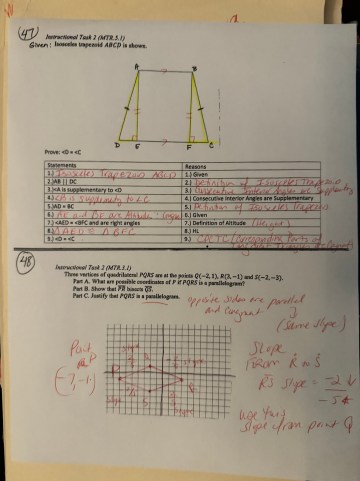 47
Instructional Task 2 (MTR.3.1)
Given: Isosceles trapezoid ABCD is shown.
A B
D E F C
Prove: <D = <C
Statements Reasons
1.) Isosceles Trapezoid ABCD 1.) Given
2.) AB || DC 2.) Definition of Isosceles Trapezoid
3.) <A is supplementary to <D 3.) Consecutive Interior Angles are Supplementary
4.) <B is supplementary to <C 4.) Consecutive Interior Angles are Supplementary
5.) AD = BC 5.) Definition of Isosceles Trapezoid
6.) AE and BF are Altitude 6.) Given
7.) <AED = <BFC and are right angles 7.) Definition of Altitude (Height)
8.) ΔAED = ΔBFC 8.) HL
9.) <D = <C 9.) CPCTC (Corresponding Parts of
Congruent Triangles are Congruent
48
Instructional Task 2 (MTR.3.1)
Three vertices of quadrilateral PQRS are at the points Q(−2, 1), R(3, −1) and S(−2, −3).
Part A. What are possible coordinates of P if PQRS is a parallelogram?
Part B. Show that PR bisects QS.
Part C. Justify that PQRS is a parallelogram.
opposite sides are parallel
and congruent
(same slope)
Point
P
(-7,-1)
Slope
from R to S
RS slope = -2
-5
use this
slope from point Q